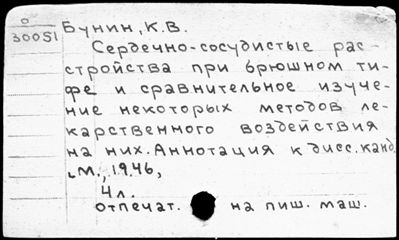 О
30051
Бунин, К.В.
Сердечно-сосудистые рас-
стройства при брюшном ти-
фе и сравнительное изуче-
ние некоторых методов ле-
карственного воздействия
на них. Аннотация к дисс. канд.
М., 1946,
4 л.
отпечат. на пиш. маш.